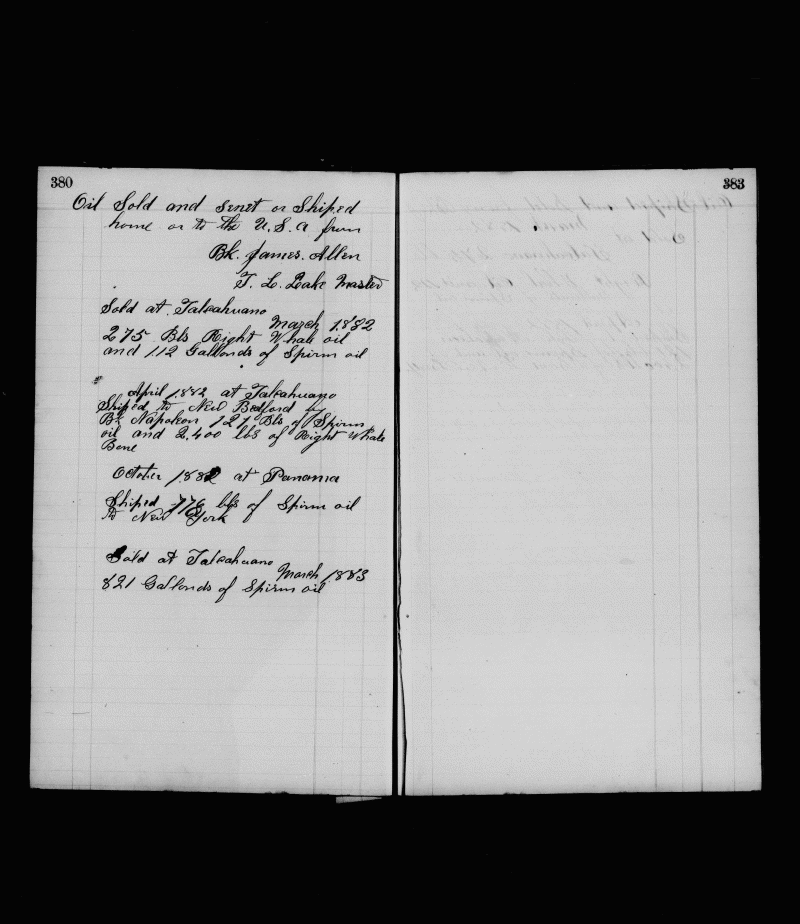 380
Oil Sold and senet or Shiped
home or to the U.S.a from
Bk. James. Allen
T. L. Leak Master
Sold at Talcahuano
March 1882
275 Bls Right Whale oil
and 112 Gallonds of Spirm oil
April 1882 at Talcahuano
Shiped to New Bedford by
Bk Napoleon 127 Bls of Spirm
oil and 2,400 lbs of Right Whale
Bone
October 1882 at Panama
Shiped 776 bls of Spirm oil
to New York
Sold at Talcahuano
March 1883
821 Gallonds of Spirm oil
383